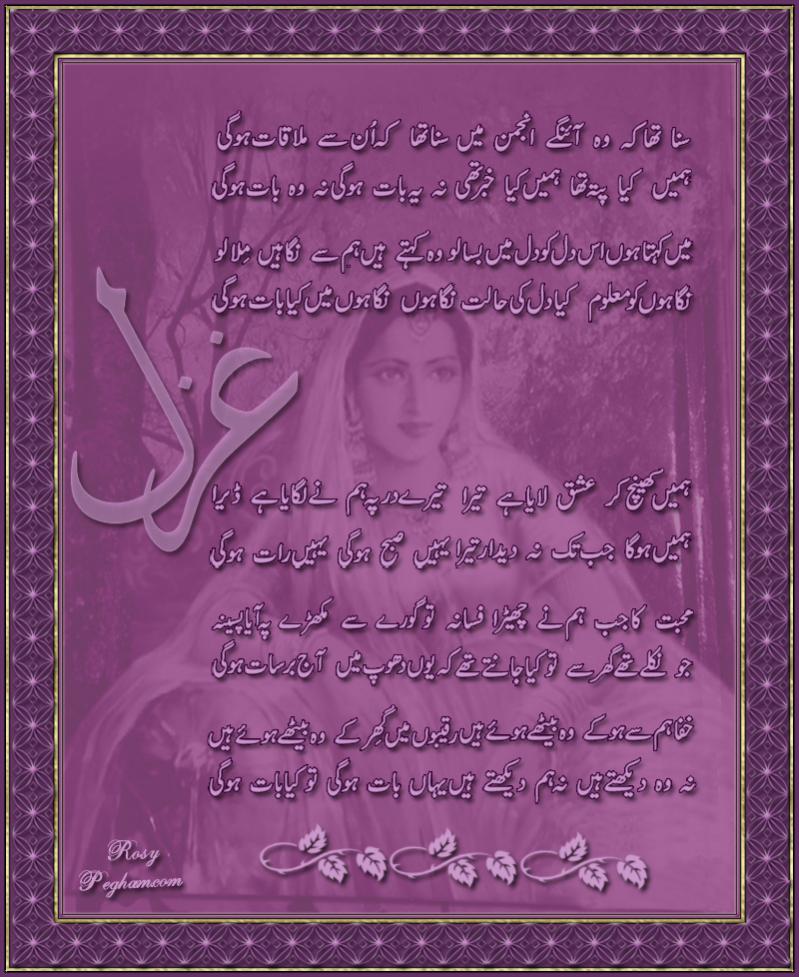 سنا تھا کہ وہ آئنگے انجمن میں سنا تھا کہ اُن سے ملاقات ہوگی
ہمیں کیا پتہ تھا ہمیں کیا خبر تھی نہ یہ بات ہوگی نہ وہ بات ہوگی
میں کہتا ہوں اس دل کو دل میں بسا لو وہ کہتے ہیں ہم سے نگاہیں مِلا لو
نگاہوں کو معلوم کیا دل کی حالت نگاہوں نگاہوں میں کیا بات ہوگی
غزل
ہمیں کھینچ کر عشق لایا ہے تیرا تیرے در پہ ہم نے لگایا ہے ڈیرا
ہمیں ہوگا جب تک نہ دیدار تیرا یہیں صبح ہوگی یہیں رات ہوگی
محبت کا جب ہم نے چھیڑا فسانہ تو گورے سے مکھڑے پہ آیا پسینہ
جو نکلے تھے گھر سے تو کیا جانتے تھے کہ یوں دھوپ میں آج برسات ہوگی
خفا ہم سے ہو کے وہ بیٹھے ہوئے ہیں رقیبوں میں گھِر کے وہ بیٹھے ہوئے ہیں
نہ وہ دیکھتے ہیں نہ ہم دیکھتے ہیں یہاں بات ہوگی تو کیا بات ہوگی
Rosy
Pegham.com